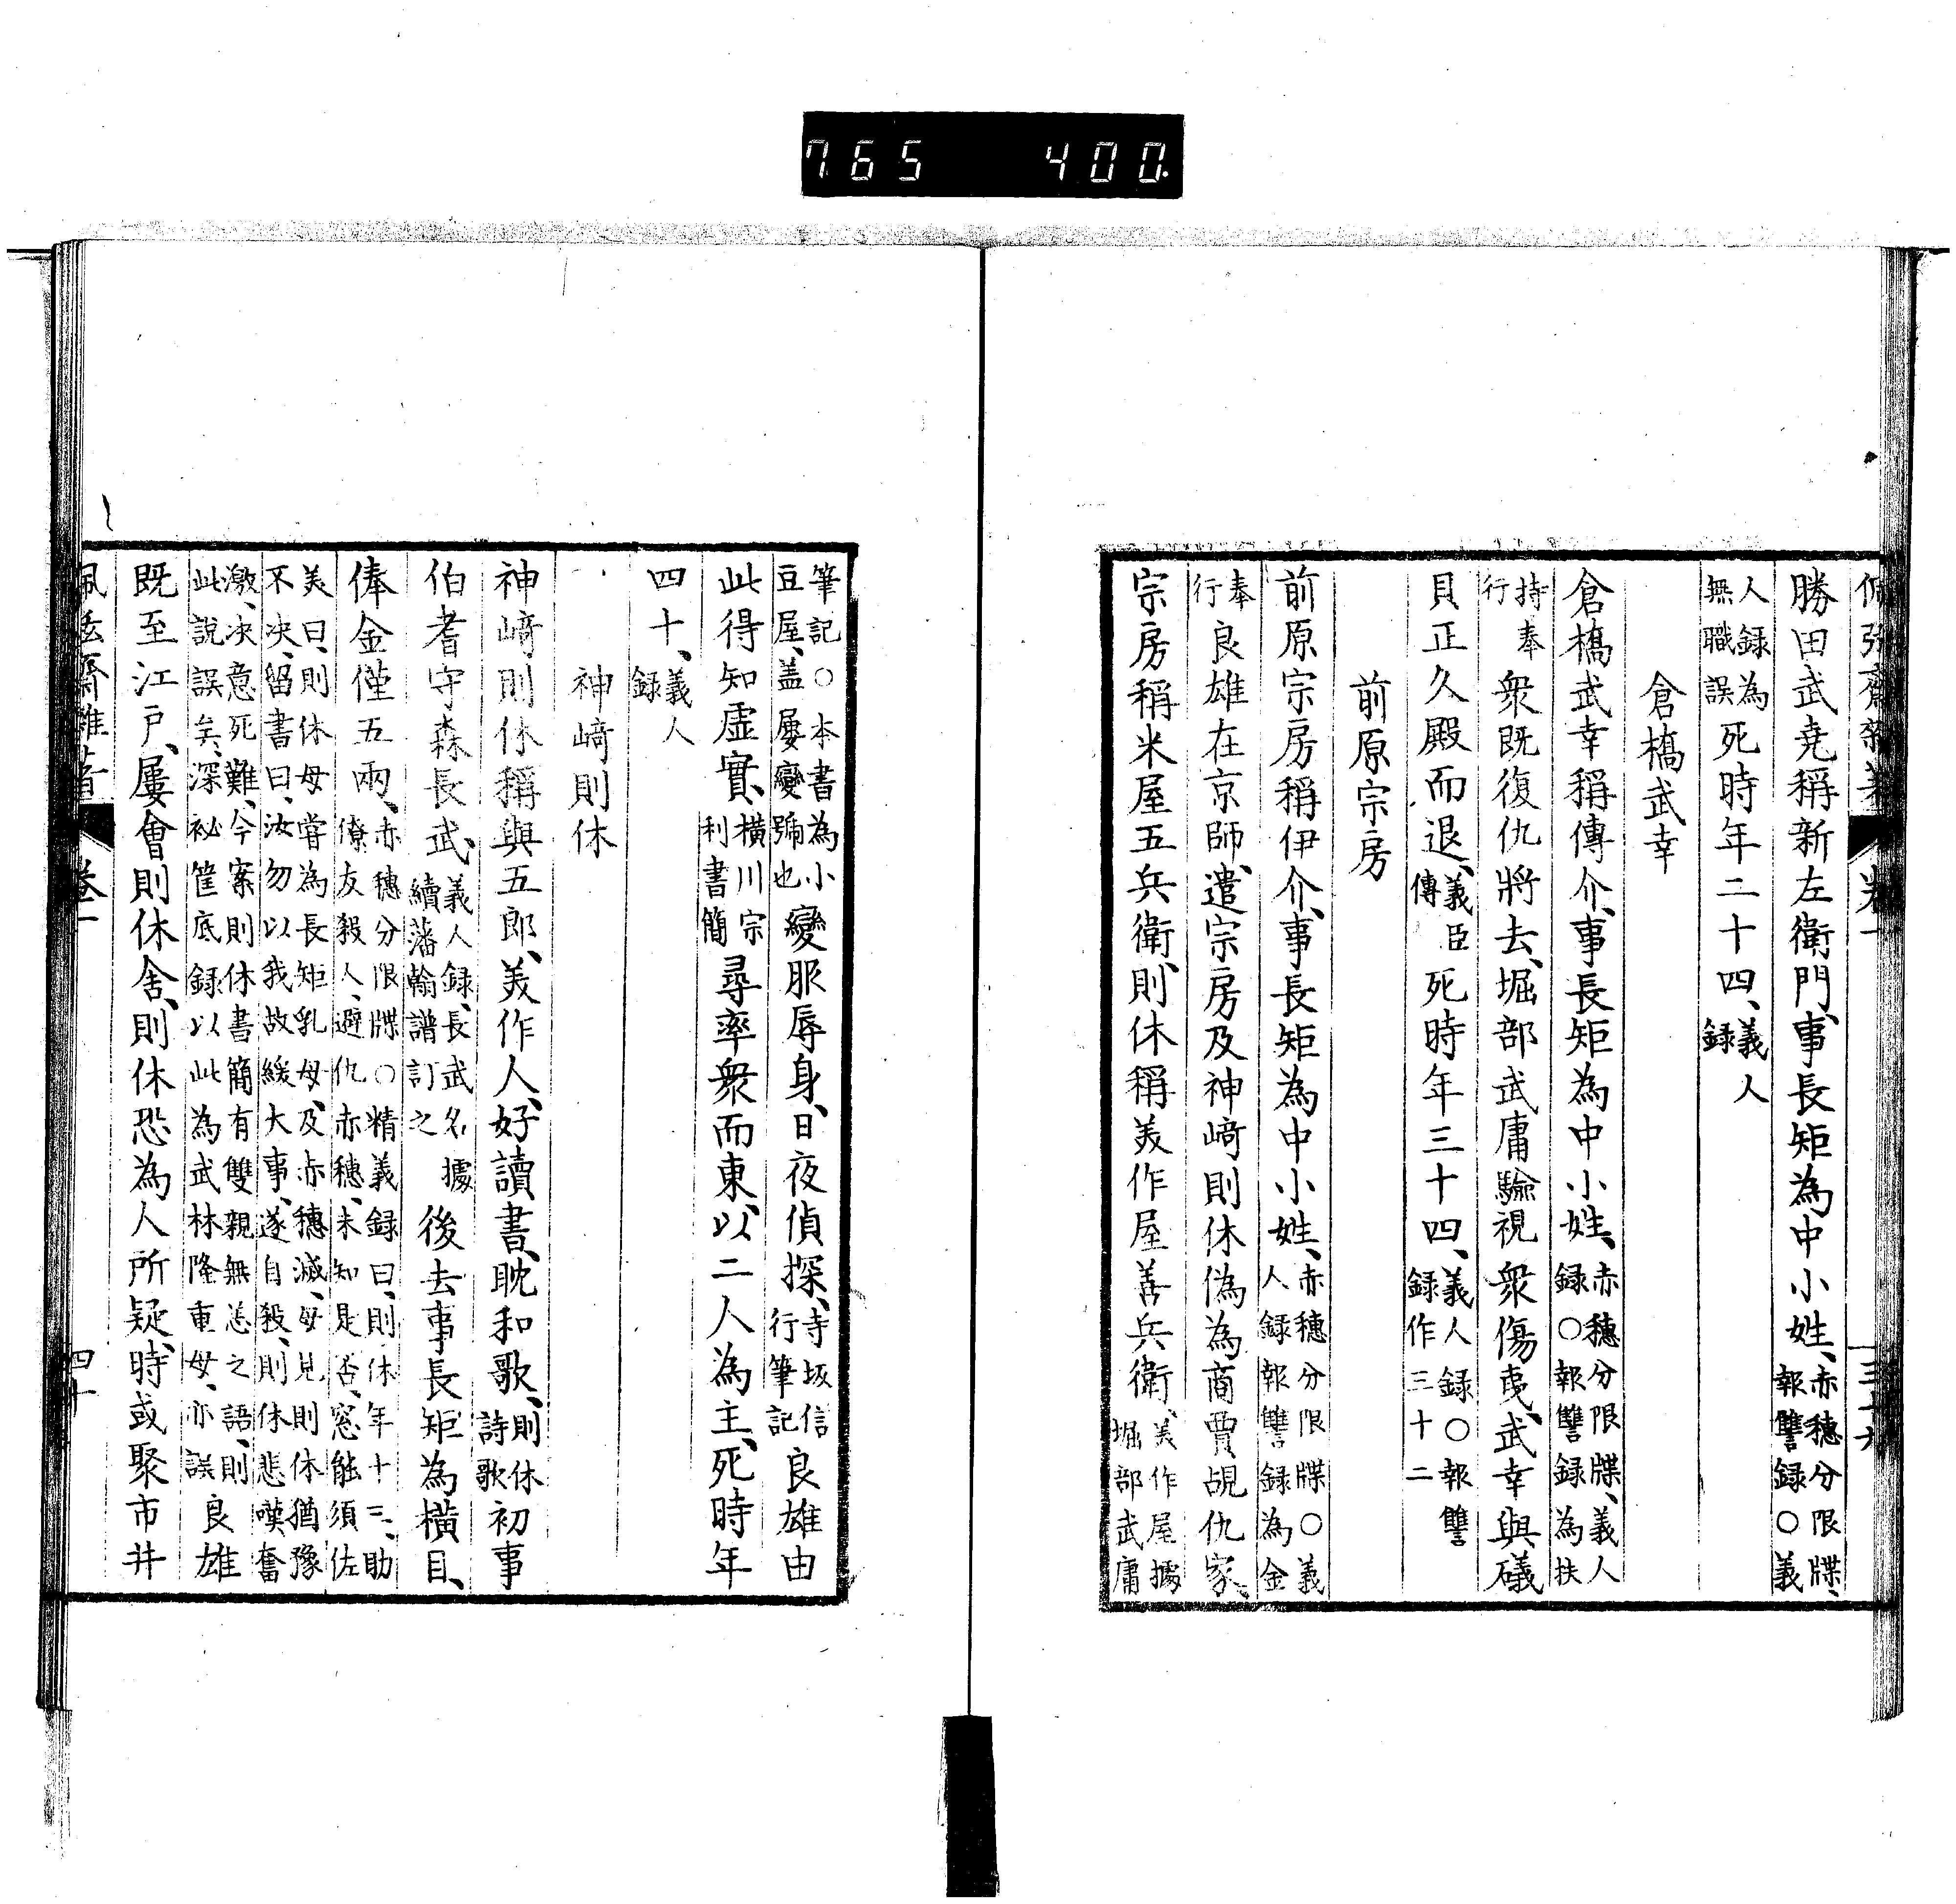 765 400.
勝田武尭稱新左衛門、事長矩為中小姓、赤穗分限牒、報讐録○義
人録為無職誤死時年二十四、義人録
倉橋武幸
倉橋武幸稱傳介、事長矩為中小姓、赤穗分限牒、義人録○報讐録為扶
持奉行衆既復仇將去、堀部武庸驗視衆傷夷、武幸與礒
貝正久殿而退、義臣傳死時年三十四、義人録○報讐録作三十二
前原宗房
前原宗房稱伊介、事長矩為中小姓、赤穗分限牒○義人録報讐録為金
奉行良雄在京師、遣宗房及神﨑則休偽為商賈覘仇家、
宗房稱米屋五兵衛、則休稱美作屋善兵衛、美作屋據堀部武庸
筆記○本書為小豆屋、盖屢變號也變服辱身、日夜偵探、寺坂信行筆記良雄由
此得知虚實、橫川宗利書簡尋率衆而東、以二人為主、死時年
四十、義人録
神﨑則休
神﨑則休稱與五郎、美作人、好讀書、耽和歌、則休詩歌初事
伯耆守森長武、義人録、長武名據續藩翰譜訂之後去事長矩為橫目、
俸金僅五兩、赤穗分限牒○精義録曰、則休年十三、助僚友殺人、避仇赤穗、未知是否、窓能須佐
美曰、則休母嘗為長矩乳母、及赤穗滅、母見則休猶豫不决、留書曰、汝勿以我故緩大事、遂自殺、則休悲嘆奮
激、决意死難、今案則休書簡有雙親無恙之語、則此說誤矣、深祕筐底録以此為武林隆重母、亦誤良雄
既至江戸、屢會則休舍、則休恐為人所疑、時或聚市井
卷一
四十